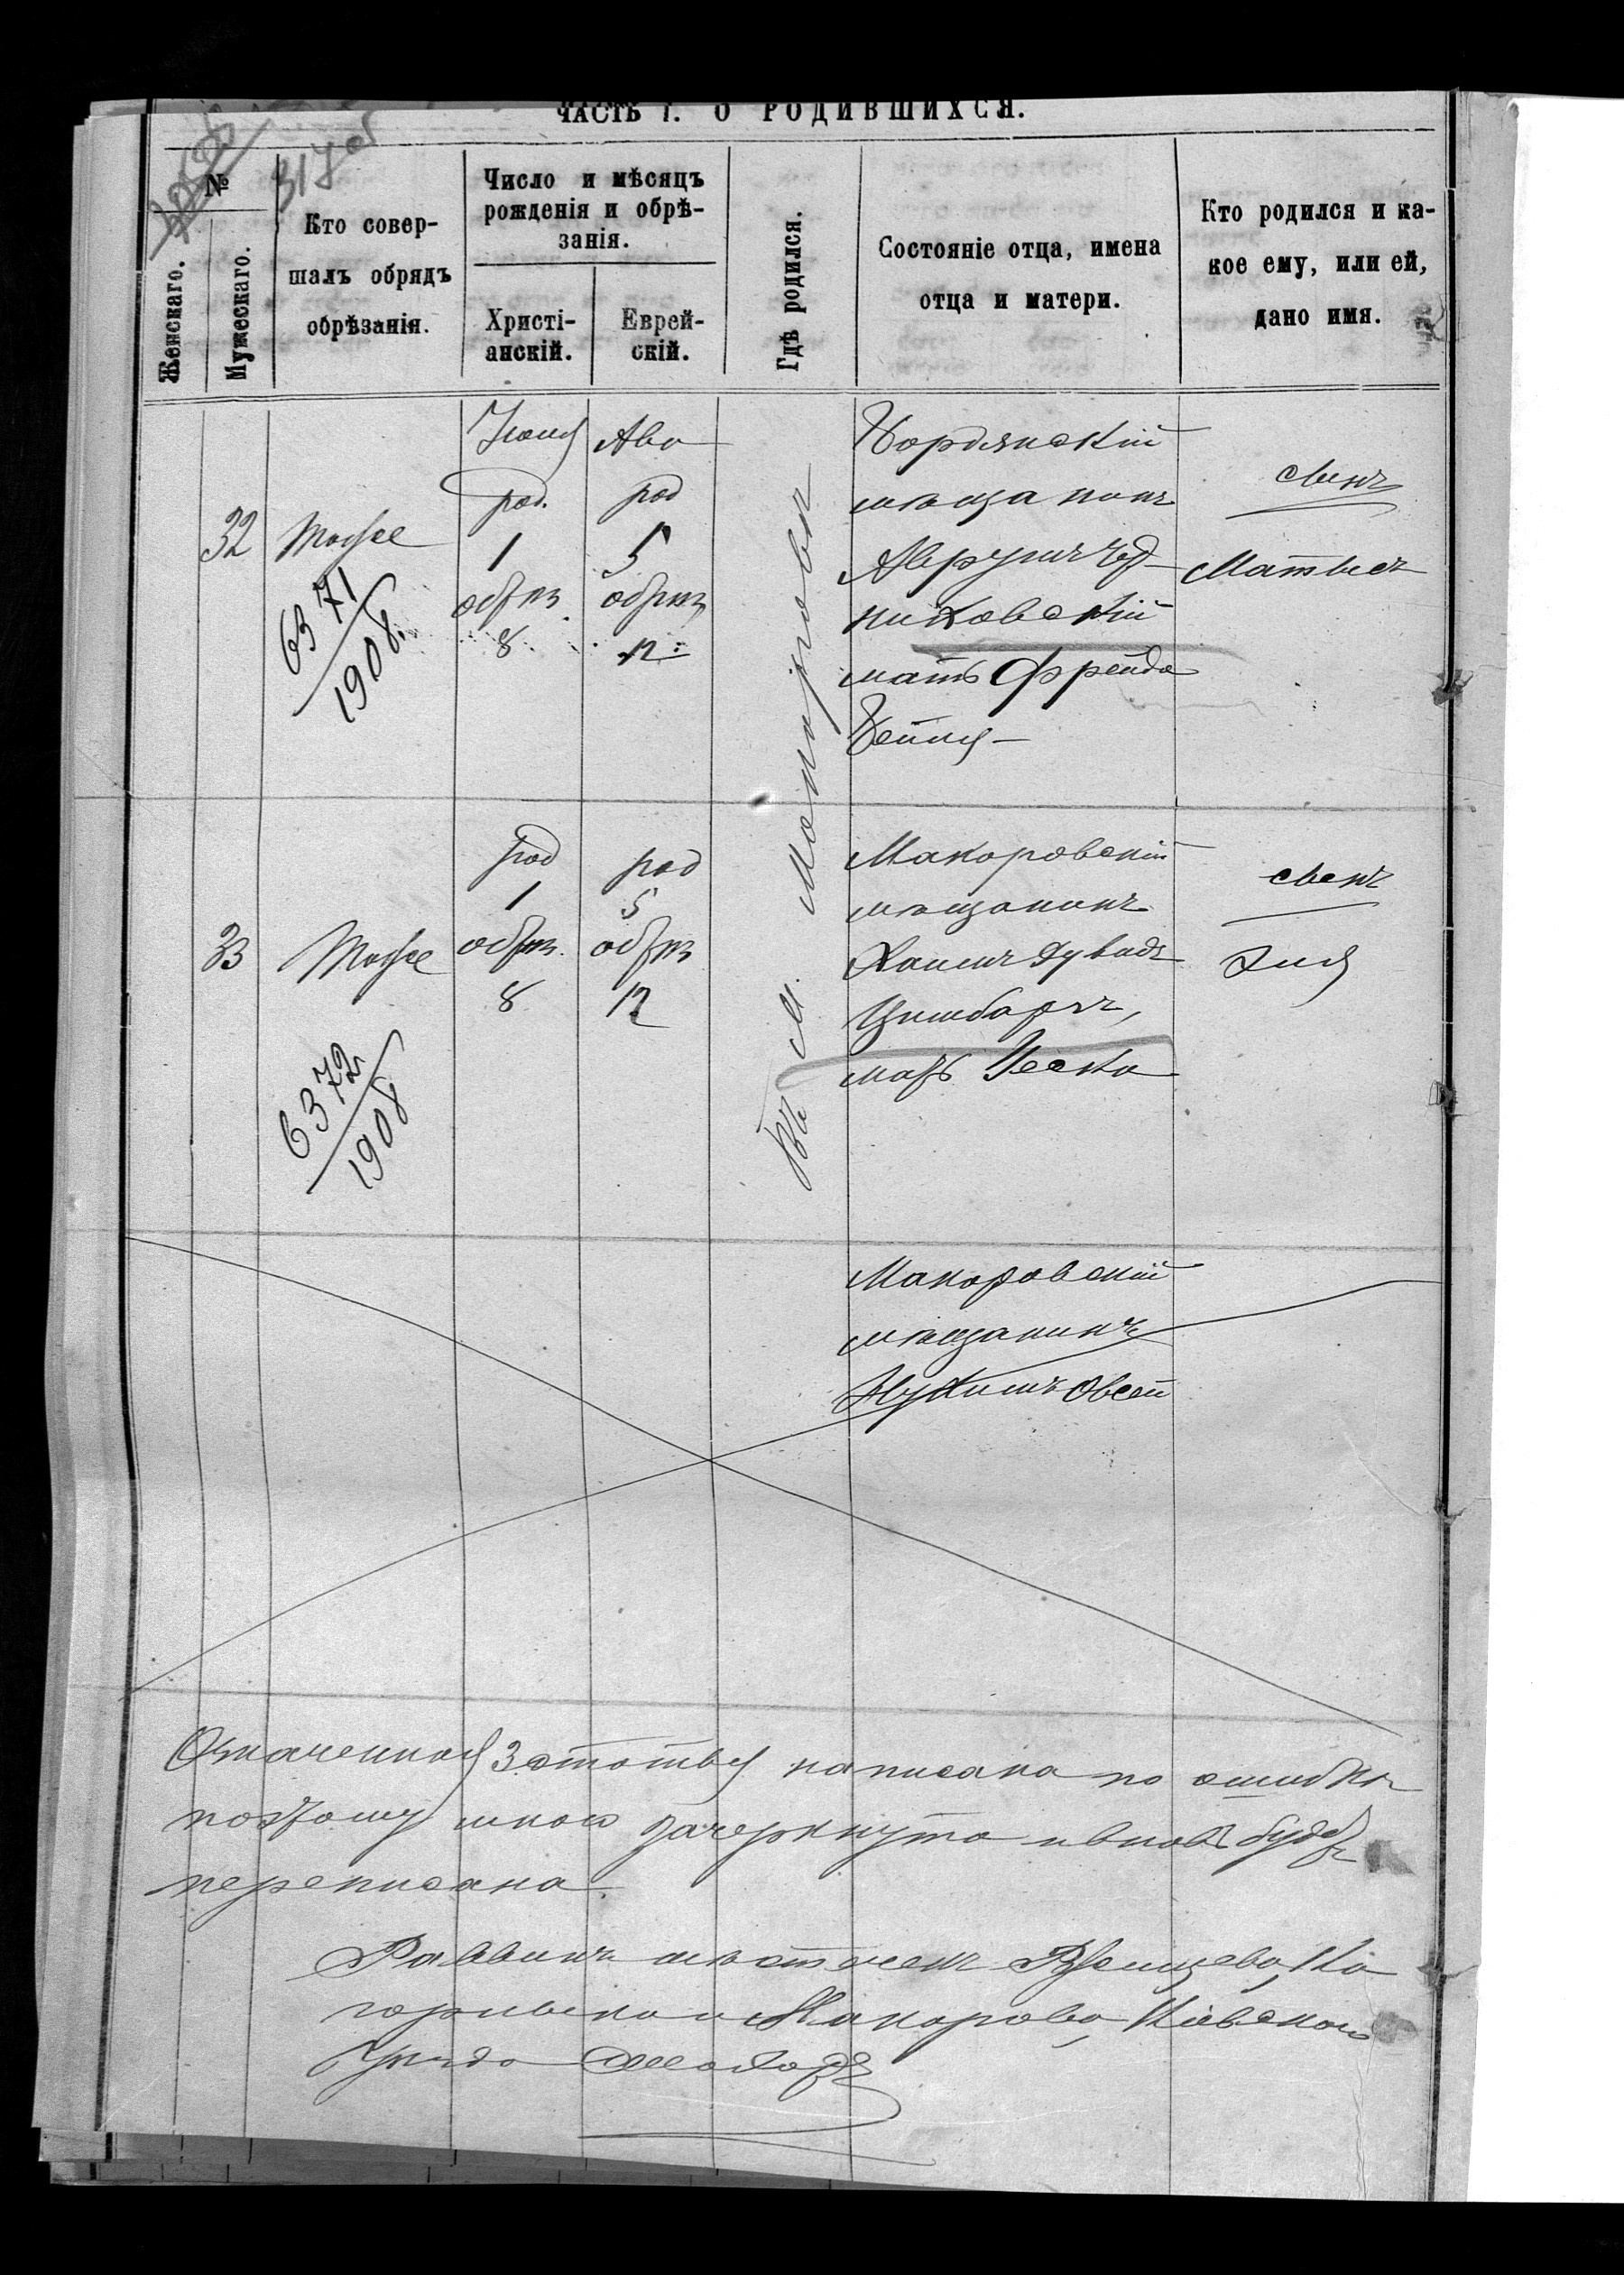 ЧАСТЬ I. О РОДИВШИХСЯ.
317 об
№
Женскаго.
Мужескаго.
Кто совер-
шалъ обрядъ
обрѣзанія.
Число и мѣсяцъ
рожденія и обрѣ-
занія.
Христі-
анскій.
Еврей-
скій.
Гдѣ родился.
Состояніе отца, имена
отца и матери.
Кто родился и ка-
кое ему, или ей,
дано имя.
32
Тоже
6371
1908.
Іюля
род.
1
обрѣз.
8
Ава
род
5
обрѣз
12
Въ м. Макаровѣ
Бордянскій
мѣщанинъ
Аврумъ
ниховскій
мать Фрейда
Бейля
сынъ
Матысъ
33
Тоже
6372
1908
род
1
обрѣз.
8
род
5
обрѣз
12
Макаровскій
мѣщанинъ
Хаимъ Дувидъ
Цимбаръ,
мать Песка
сынъ
Эля
Макаровскій
мѣщанинъ
Нухимъ Овсей
Означенная 3 статья написана по ошибкѣ
поэтому мною зачеркнута и вновь будетъ
переписана.
Раввинъ мѣстечекъ Ржищева, Ка
горлыка и Макарова, Кіевскаго
Уѣзда